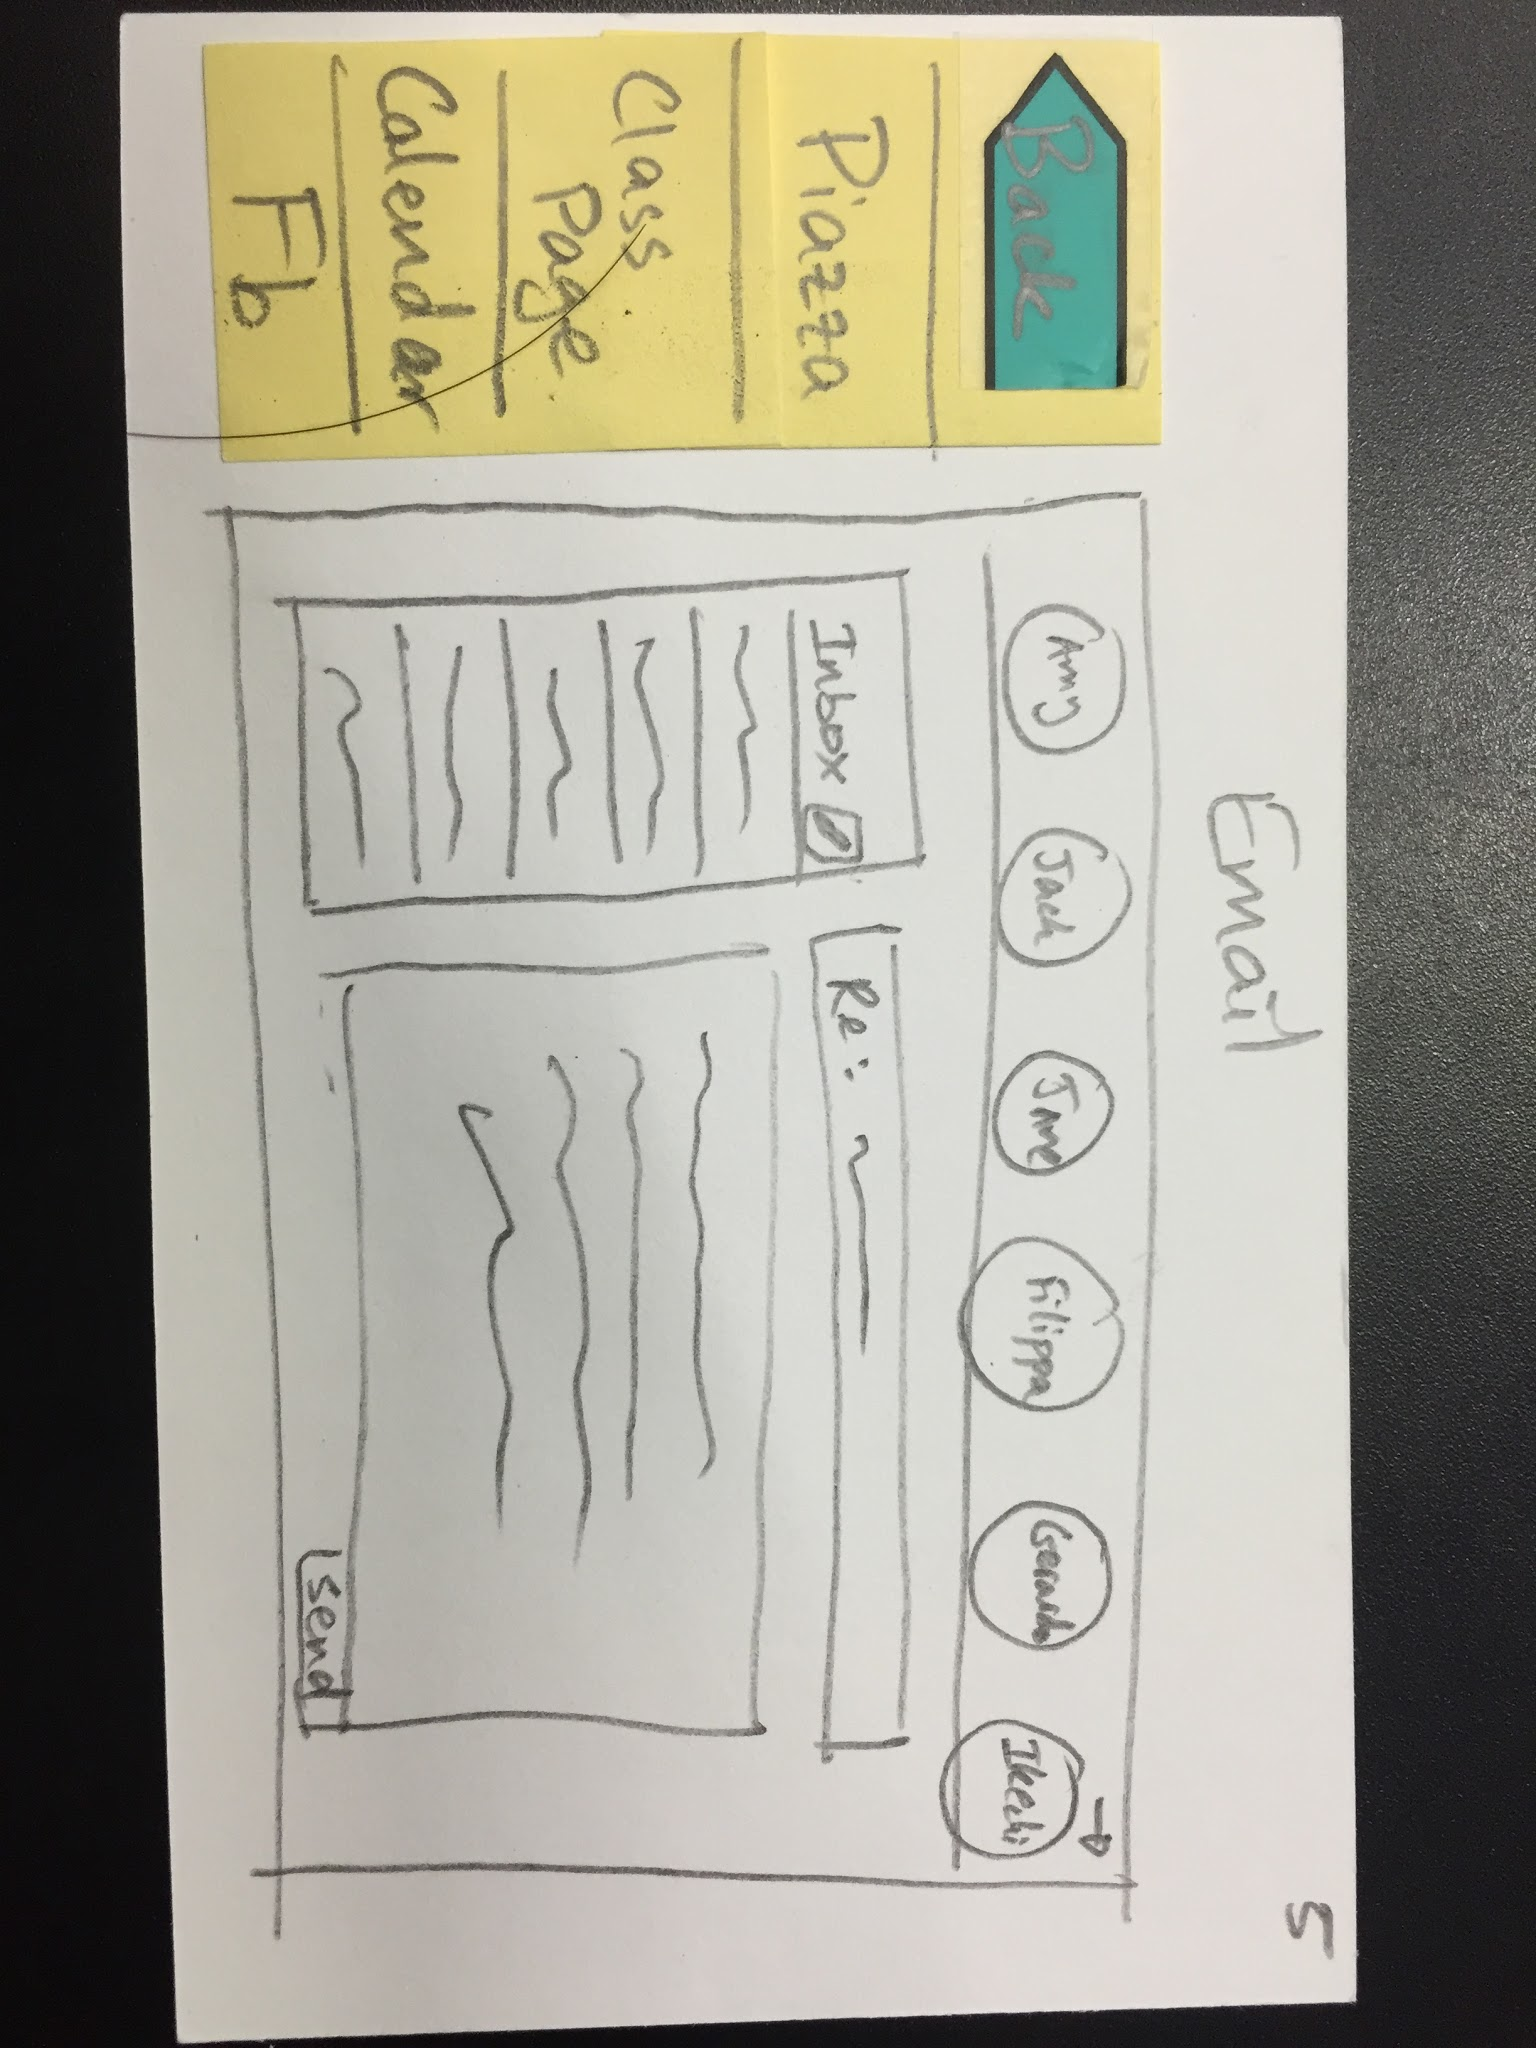 Email
5
Back
Piazza
Class
Page
Calendar
Fb
Amy
Jack
Jane
Filippa
Gerardo
Ikechi
Inbox
Re:
Send